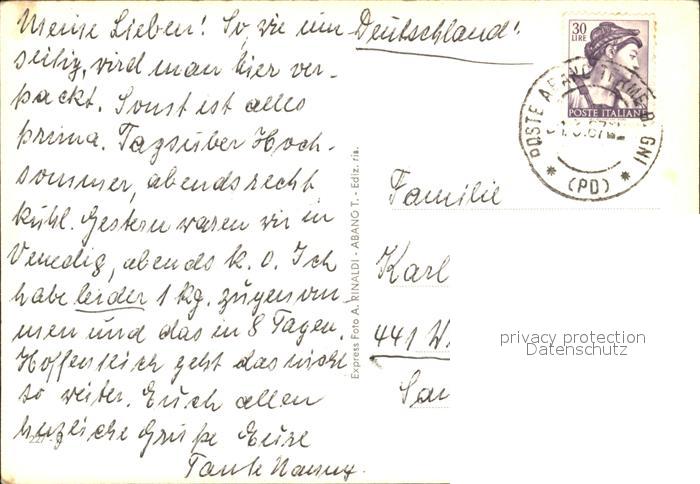 Meine Lieben! So, wie um
seitig, wird man hier ver-
packt. Sonst ist alles
prima. Tagsüber Hoch-
sommer, abends recht
kühl. Gestern waren wir in
Venedig, abends k. o. Ich
habe leider 1 kg. zugenom-
men und das in 8 Tagen.
Hoffentlich geht das nicht
so weiter. Euch allen
herzliche Grüße Eure
Tante
Deutschland!
30
LIRE
POSTE ITALIANE
POSTE ABANO TERME BAGNI
(PD)
Express Foto A. RINALDI - ABANO T. - Ediz. ris.
Familie
Karl
441 W
privacy protection
Datenschutz